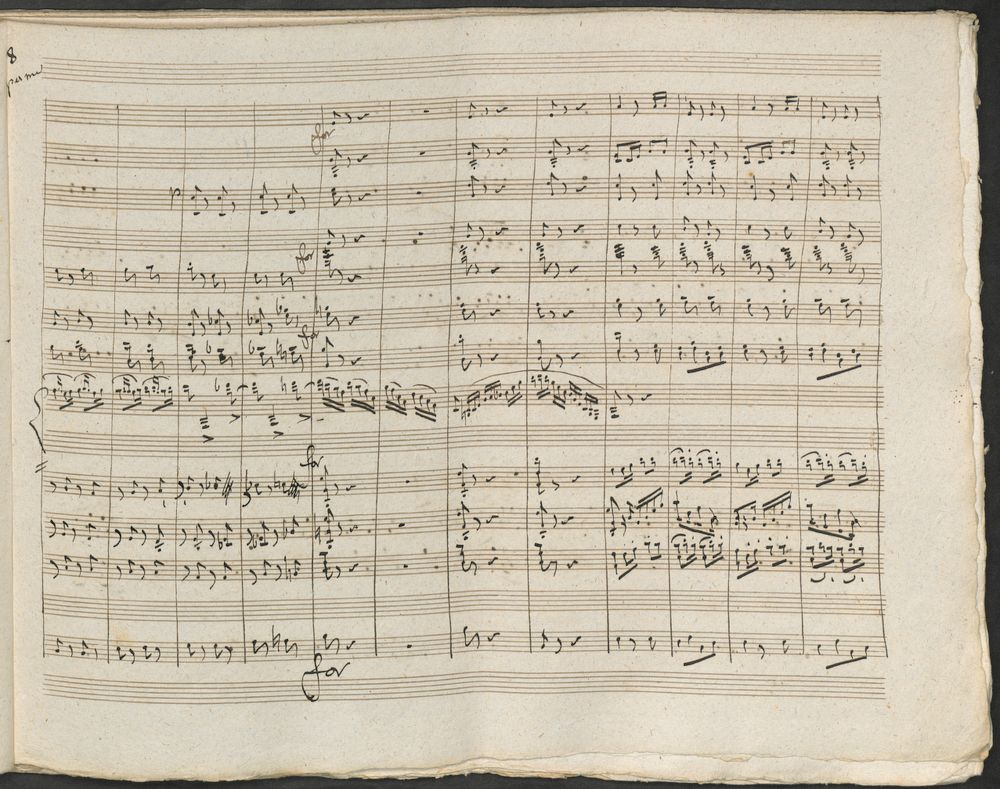 8
per me
for
for
p
for
for
for